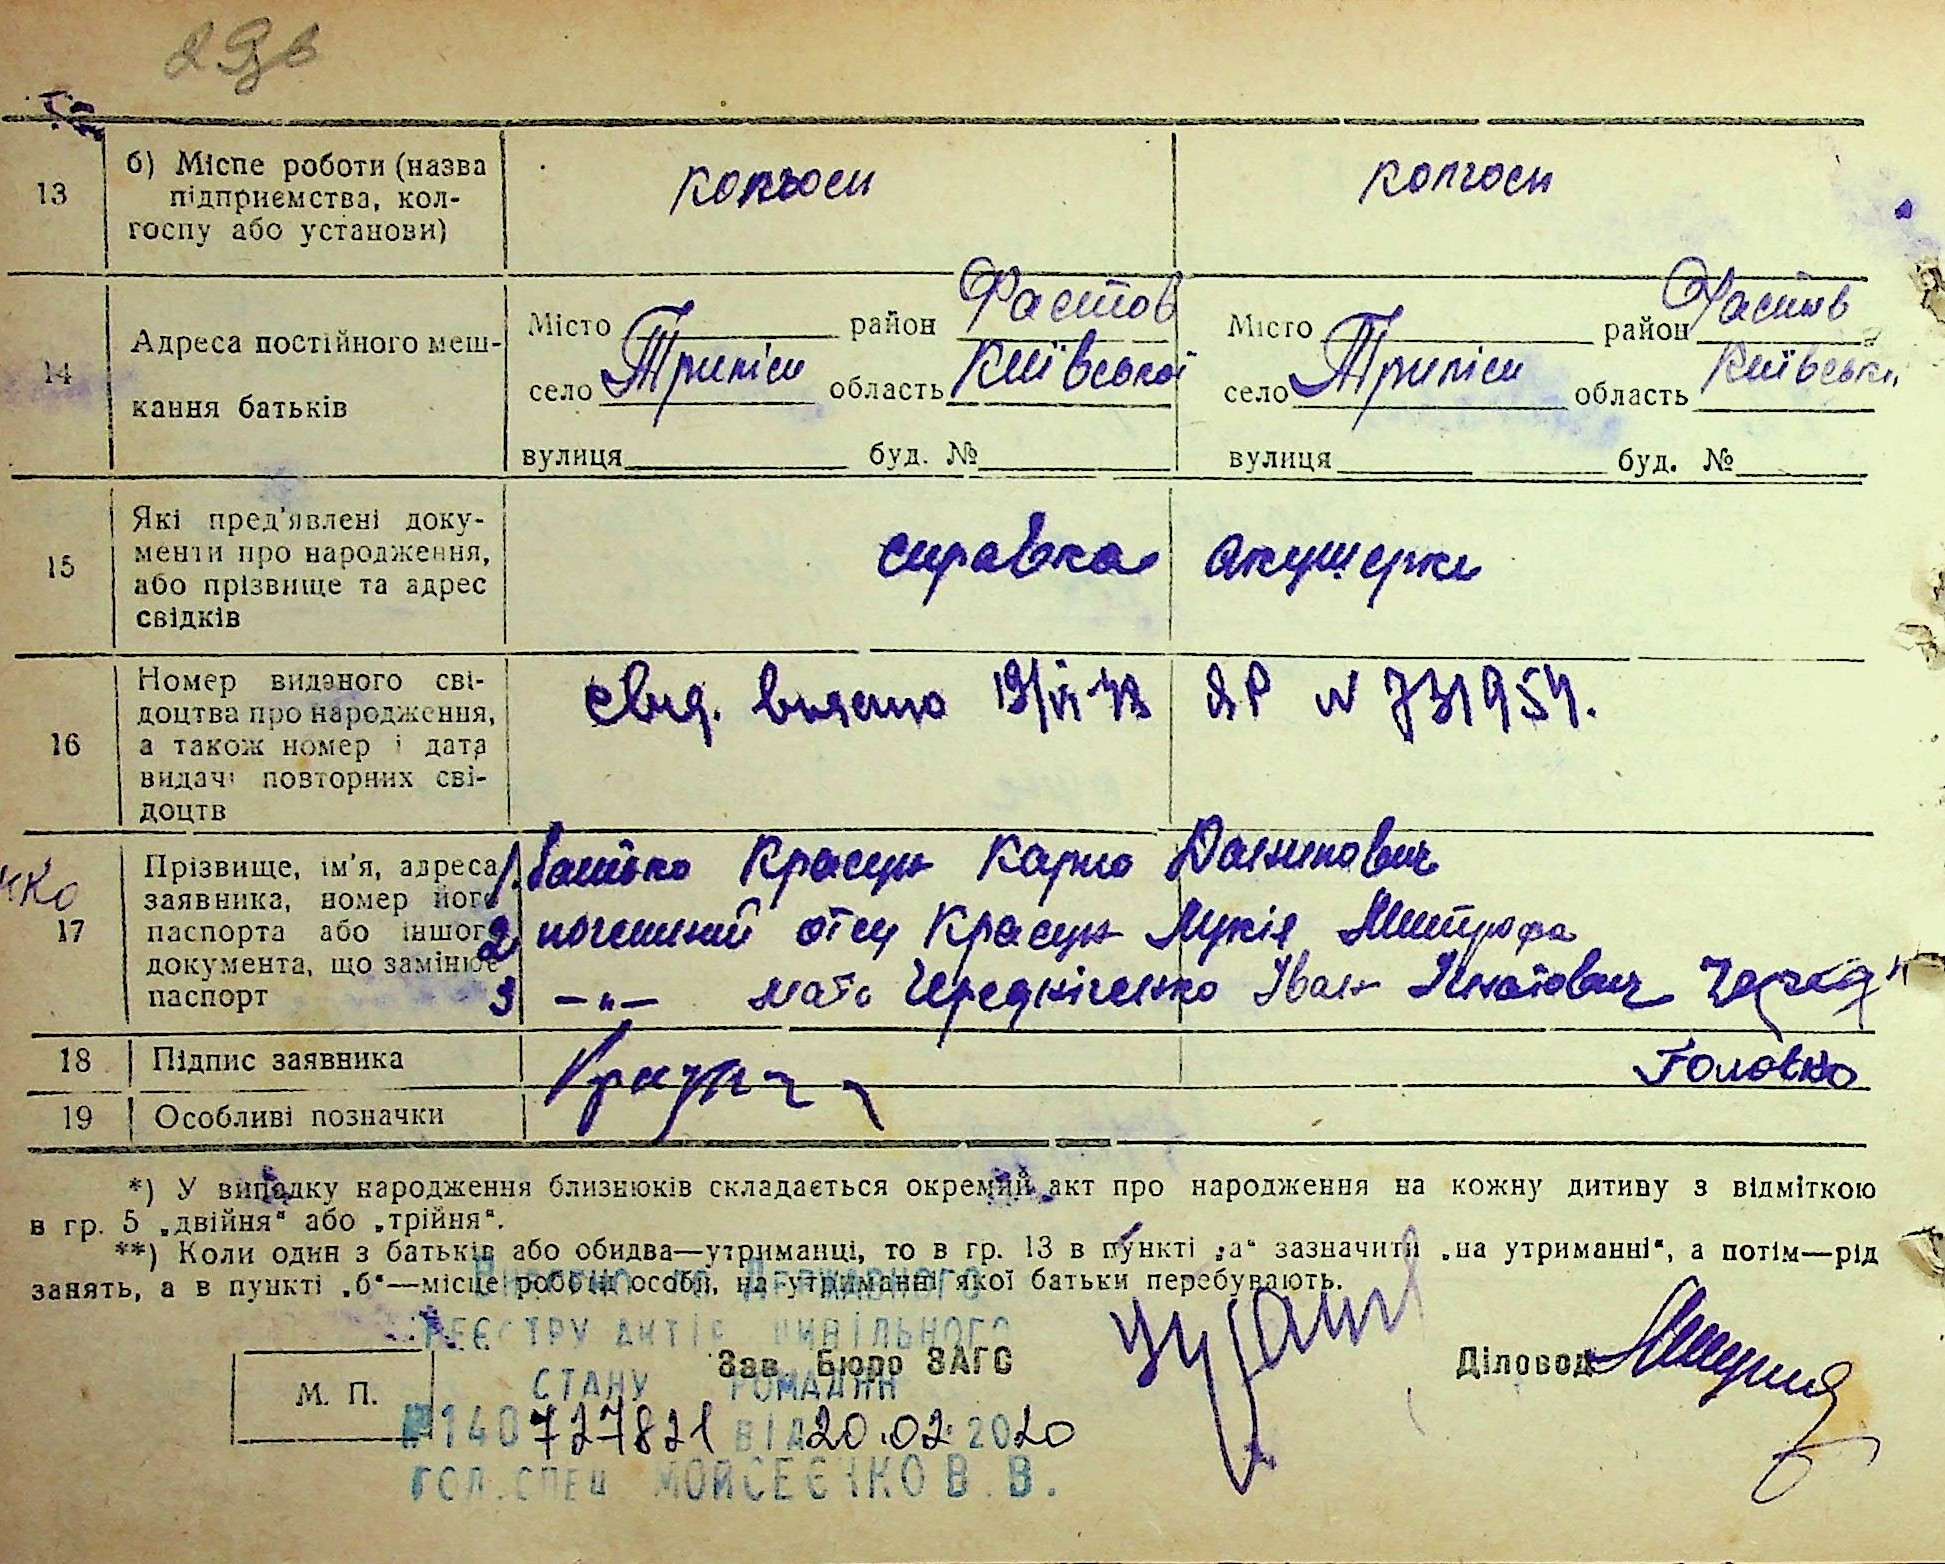 13 б) Місце роботи (назва підприємства, кол-госпу або установи) колгосп колгосп
14 Адреса постійного меш-
кання батьків
Місто район Фастов Місто район Фастов
село Трипіси область Київської село Трипіси область Київської
вулиця буд. № вулиця буд. №
15 Які пред'явлені доку-
менти про народження,
або прізвище та адрес
свідків
справка акушерки
16 Номер виданого сві-
доцтва про народження,
а також номер і дата
видачі повторних сві-
доцтв
свид. видано 19/VI-43 ЯР N 731954.
17 Прізвище, ім'я, адреса
заявника, номер його
паспорта або іншого
документа, що замінює
паспорт
1. батько Красун Карпо Данилович
2 Красун Лукія Митрофа
3 —"— мати Чередніченко Іван Игнатович
18 Підпис заявника Головко
19 Особливі позначки
*) У випадку народження близнюків складається окремий акт про народження на кожну дитину з відміткою
в гр. 5 „двійня“ або „трійня“.
**) Коли один з батьків або обидва—утриманці, то в гр. 13 в пункті „а“ зазначити „на утриманні“, а потім—рід
занять, а в пункті „б“—місце роботи особи, на утриманні якої батьки перебувають.
Внесено до Державного
реєстру актів цивільного
стану громадян
№140727821 від 20.02.2020
гол.спец Мойсеєнко В.В.
М. П.
Зав. Бюро ЗАГС
Діловод